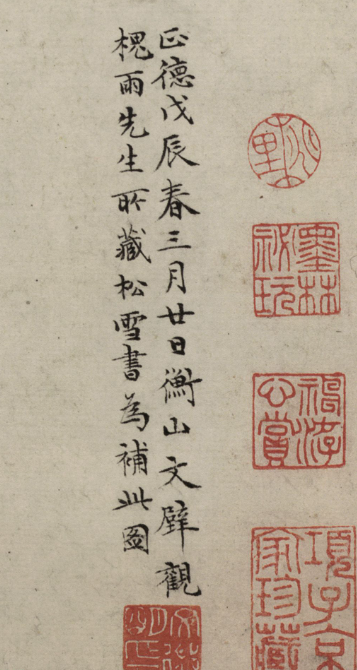 正德戊辰春三月廿日衡山文璧觀
槐雨先生所藏松雪書為補此圖
墨林
祕玩
項子京
家珍藏